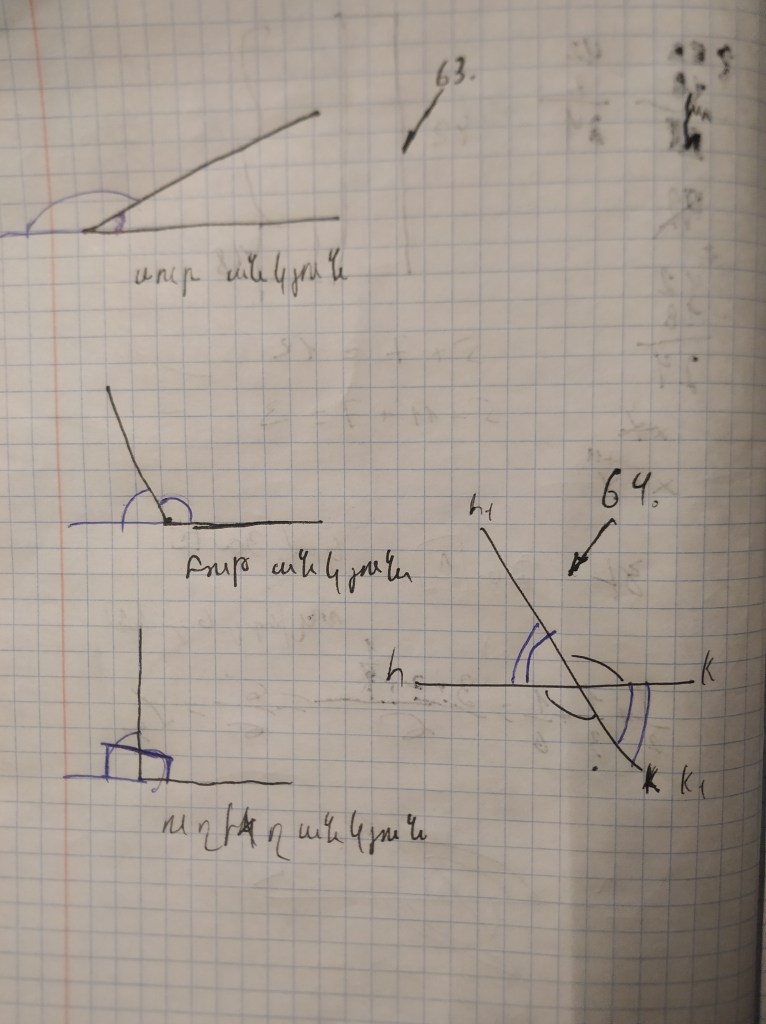 63.
սուր անկյուն
64.
h₁
բութ անկյուն
h K
K K₁
ուղիղ անկյուն